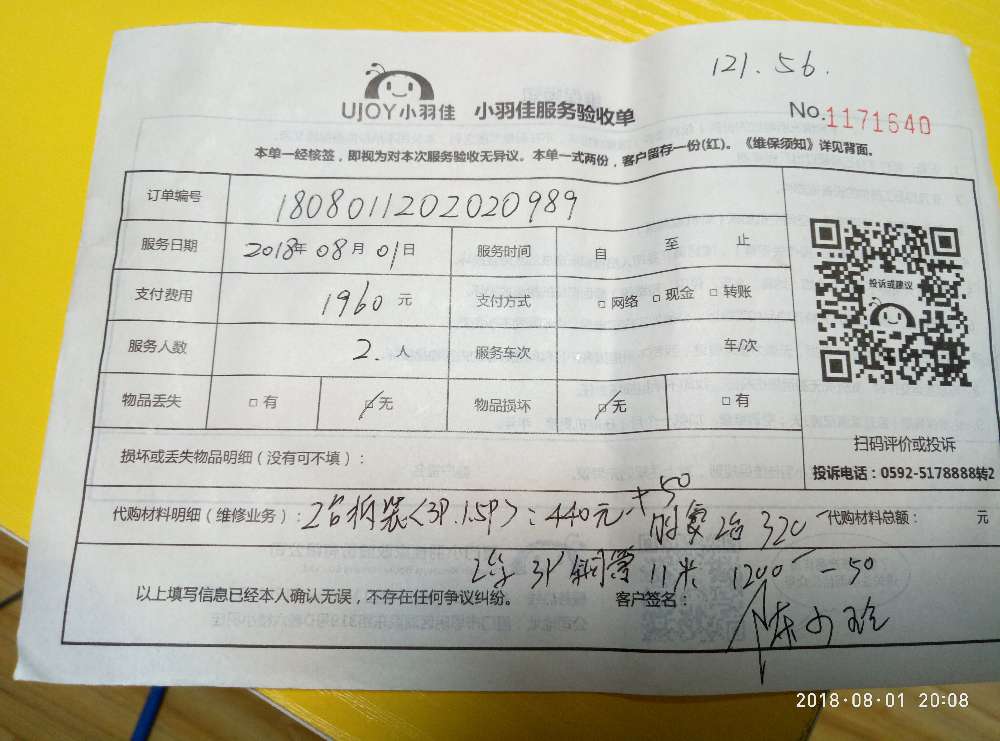 121.56.
UJOY小羽佳 小羽佳服务验收单
No.1171640
本单一经核签，即视为对本次服务验收无异议。本单一式两份，客户留存一份(红)。《维保须知》详见背面。
订单编号 1808011202020989
服务日期 2018年08月01日 服务时间 自 至 止
支付费用 1960元 支付方式 □网络 □现金 □转账
服务人数 2.人 服务车次 车/次
物品丢失 □有 □无 物品损坏 □无 □有
投诉或建议
扫码评价或投诉
投诉电话：0592-5178888转2
损坏或丢失物品明细（没有可不填）：
+50
代购材料明细（维修业务）：2台拆装（3P.1.5P）：440元 2台 320 代购材料总额： 元
3P 铜管 11米 1200 -50
以上填写信息已经本人确认无误，不存在任何争议纠纷。 客户签名：
2018-08-01 20:08